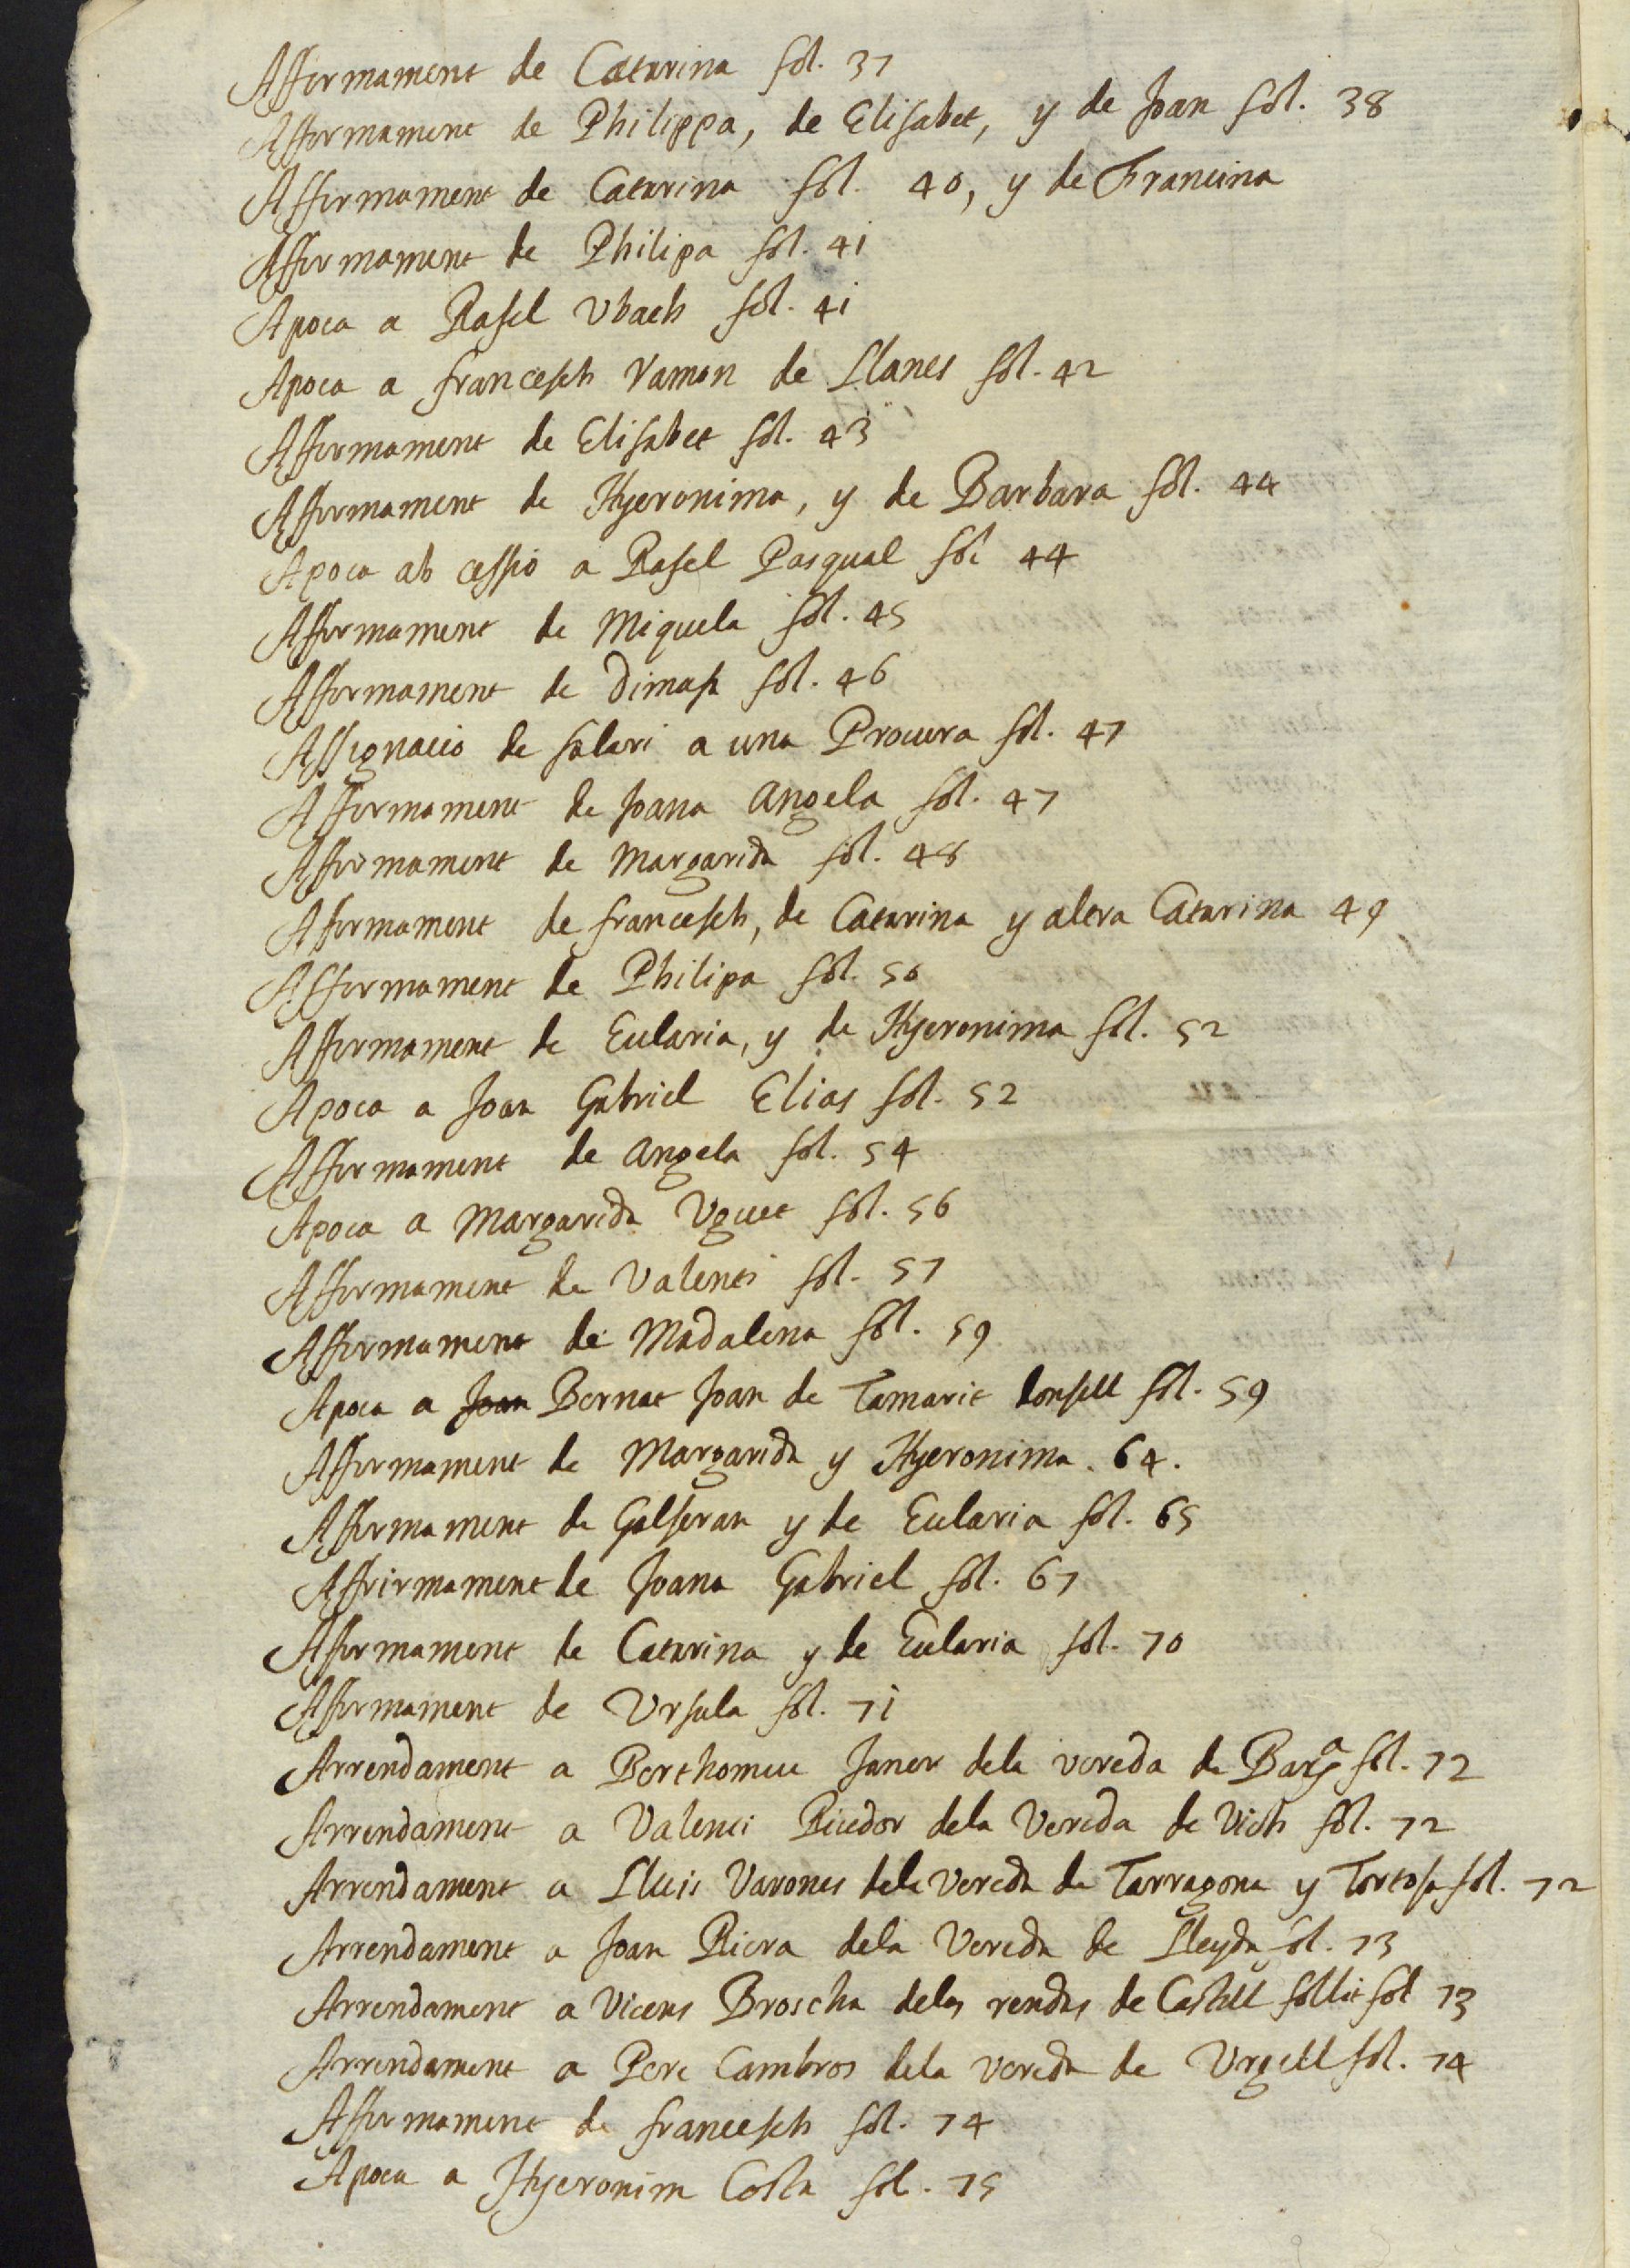 Affermament de Catarina fol. 37
Affermament de Philippa, de Elisabet, y de Joan fol. 38
Affermament de Catarina fol. 40, y de Francina
Affermament de Philipa fol. 41
Apoca a Rafel Ubach fol. 41
Apoca a francesch Ramon de Llanes fol. 42
Affermament de Elisabet fol. 43
Affermament de Hyeronima, y de Barbara fol. 44
Apoca ab cessio a Rafel Pasqual fol 44
Affermament de Miquela fol. 45
Affermament de Dimas fol. 46
Assignacio de salari a una Procura fol. 47
Affermament de Joana Angela fol. 47
Affermament de Margarida fol. 48
Affermament de francesch, de Catarina y altra Catarina 49
Affermament de Philipa fol. 50
Affermament de Eularia, y de Hyeronima fol. 52
Apoca a Joan Gabriel Elias fol. 52
Affermament de Angela fol. 54
Apoca a Margarida Uguet fol. 56
Affermament de Valenti fol. 57
Affermament de Madalena fol. 59
Apoca a Joan Bernat Joan de Tamarit donsell fol. 59
Affermament de Margarida y Hyeronima. 64.
Affermament de Galseran y de Eularia fol. 65
Affrirmament de Joana Gabriel fol. 67
Affermament de Catarina y de Eularia fol. 70
Affermament de Ursula fol. 71
Arrendament a Berthomeu Janer dela vereda de Barᵃ fol. 72
Arrendament a Valenti Ricdor dela Vereda de Vich fol. 72
Arrendament a Lluis Varones dela Vereda de Tarragona y Tortosa fol. 72
Arrendament a Joan Riera dela Vereda de Lleyda fol. 73
Arrendament a Vicens Broscha delas rendas de Castell follit fol 73
Arrendament a Pere Cambros dela vereda de Urgell fol. 74
Affermament de francesch fol. 74
Apoca a Hyeronim Costa fol. 75